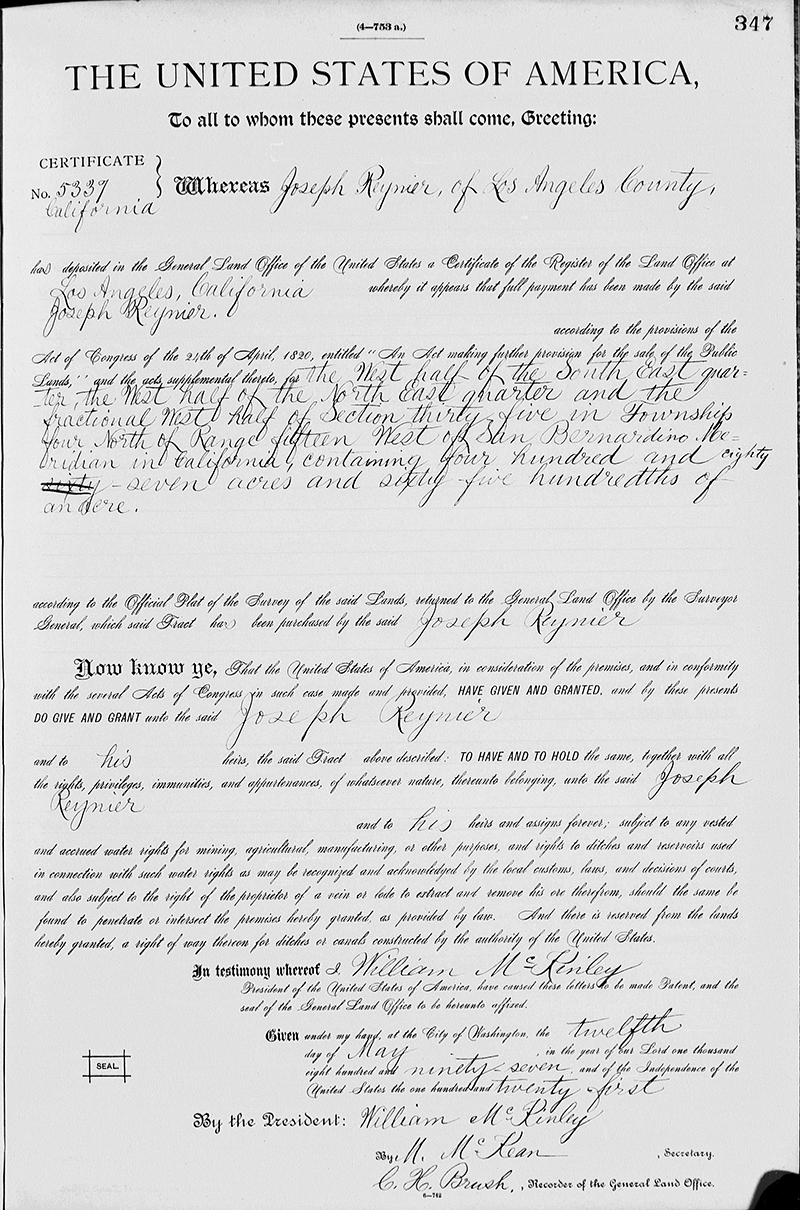 (4—753 a.)
347
THE UNITED STATES OF AMERICA,
To all to whom these presents shall come, Greeting:
CERTIFICATE
No. 5339
California
Whereas Joseph Reynier, of Los Angeles County,
has deposited in the General Land Office of the United States a Certificate of the Register of the Land Office at
Los Angeles, California whereby it appears that full payment has been made by the said
Joseph Reynier.
according to the provisions of the
Act of Congress of the 24th of April, 1820, entitled "An Act making further provision for the sale of the Public
Lands," and the acts supplemental thereto, for the West half of the South East quar=
ter, the West half of the North East quarter and the
fractional West half of Section thirty-five in Township
four North of Range fifteen West of San Bernardino Me=
ridian in California, containing four hundred and eighty
sixty-seven acres and sixty five hundredths of
an acre.
according to the Official Plat of the Survey of the said Lands, returned to the General Land Office by the Surveyor
General, which said Tract has been purchased by the said Joseph Reynier
Now know ye, That the United States of America, in consideration of the premises, and in conformity
with the several Acts of Congress in such case made and provided, HAVE GIVEN AND GRANTED, and by these presents
DO GIVE AND GRANT unto the said Joseph Reynier
and to his heirs, the said Tract above described: TO HAVE AND TO HOLD the same, together with all
the rights, privileges, immunities, and appurtenances, of whatsoever nature, thereunto belonging, unto the said Joseph
Reynier
and to his heirs and assigns forever; subject to any vested
and accrued water rights for mining, agricultural, manufacturing, or other purposes, and rights to ditches and reservoirs used
in connection with such water rights as may be recognized and acknowledged by the local customs, laws, and decisions of courts,
and also subject to the right of the proprietor of a vein or lode to extract and remove his ore therefrom, should the same be
found to penetrate or intersect the premises hereby granted, as provided by law. And there is reserved from the lands
hereby granted, a right of way thereon for ditches or canals constructed by the authority of the United States.
In testimony whereof I, William McKinley
President of the United States of America, have caused these letters to be made Patent, and the
seal of the General Land Office to be hereunto affixed.
Given under my hand, at the City of Washington, the twelfth
day of May, in the year of our Lord one thousand
eight hundred and ninety-seven, and of the Independence of the
United States the one hundred and twenty-first
SEAL.
By the President: William McKinley
By M. McKean, Secretary.
C. H. Brush, Recorder of the General Land Office.
6—742